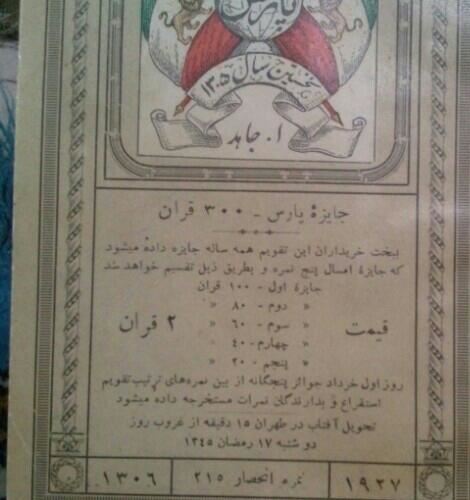 پارس
نخستین سال ۱۳۰۵
ا. جاهد
جایزهٔ پارس - ۳۰۰ قران
ببخت خریداران این تقویم همه ساله جایزه داده میشود
که جایزهٔ امسال پنج نمره و بطریق ذیل تقسیم خواهد شد
جایزهٔ اول - ۱۰۰ قران
" دوم - ۸۰ "
قیمت " سوم - ۶۰ " ۲ قران
" چهارم - ۴۰ "
" پنجم - ۲۰ "
روز اول خرداد جوائز پنجگانه از بین نمره‌های ترتیب تقویم
استقراع و بدارندگان نمرات مستخرجه داده میشود
تحویل آفتاب در طهران ۱۵ دقیقه از غروب روز
دو شنبه ۱۷ رمضان ۱۳۴۵
۱۹۲۷ نمره انحصار ۲۱۵ ۱۳۰۶